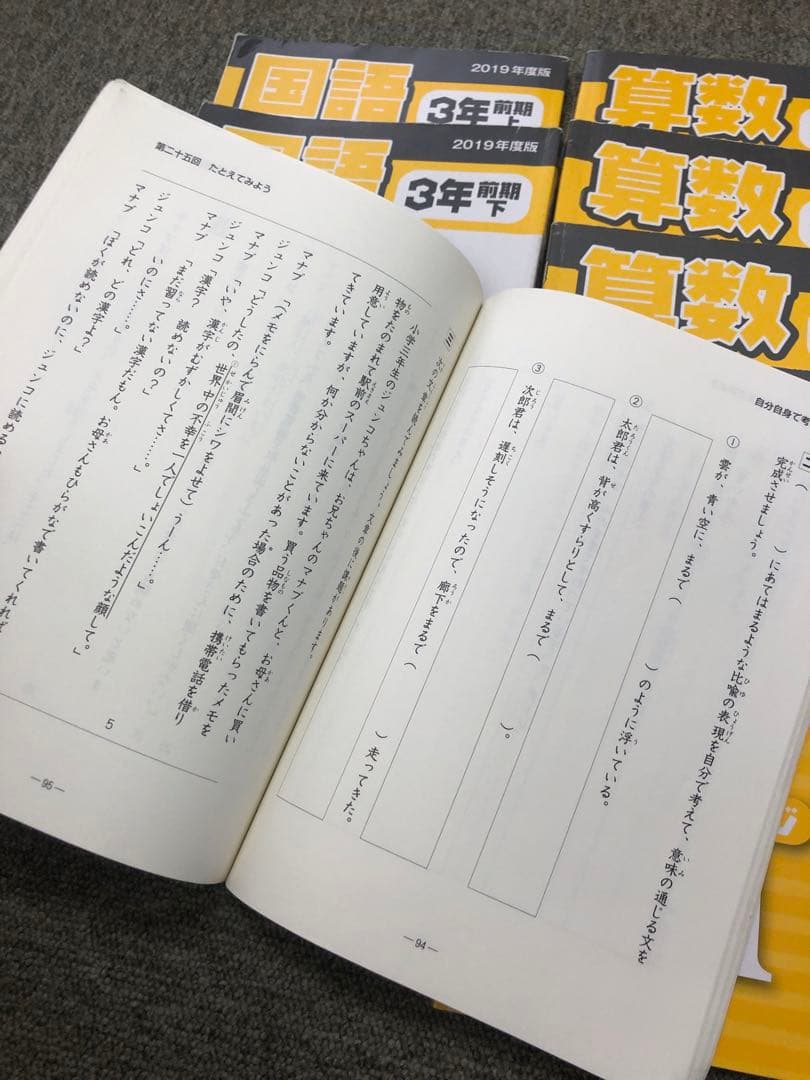 国語
2019年度版
3年 前期 上
国語
2019年度版
3年 前期 下
算数
算数
算数
自分自身で考
二
(　　)にあてはまるような比喩の表現を自分で考えて、意味の通じる文を
完成させましょう。
① 雲が、青い空に、まるで(　　)のように浮いている。
② 太郎君は、背が高くすらりとして、まるで(　　)。
③ 次郎君は、遅刻しそうになったので、廊下をまるで(　　)走ってきた。
―94―
第二十五回 たとえてみよう
三 次の文章を読んでみましょう。文章の後に課題があります。
小学三年生のジュンコちゃんは、お兄ちゃんのマナブくんと、お母さんに買い
物をたのまれて駅前のスーパーに来ています。買う品物を書いてもらったメモを
用意していますが、何か分からないことがあった場合のために、携帯電話を借り
てきています。
マナブ 「(メモをにらんで眉間にシワをよせて)うーん……。」
ジュンコ「どうしたの、世界中の不幸を一人でしょいこんだような顔して。」
マナブ 「いや、漢字がむずかしくてさ……。」
ジュンコ「漢字? 読めないの?」
マナブ 「まだ習ってない漢字だもん。お母さんもひらがなで書いてくれれば
いいのにさ……。」
ジュンコ「どれ、どの漢字よ?」
マナブ 「ぼくが読めないのに、ジュンコに読める
5
―95―